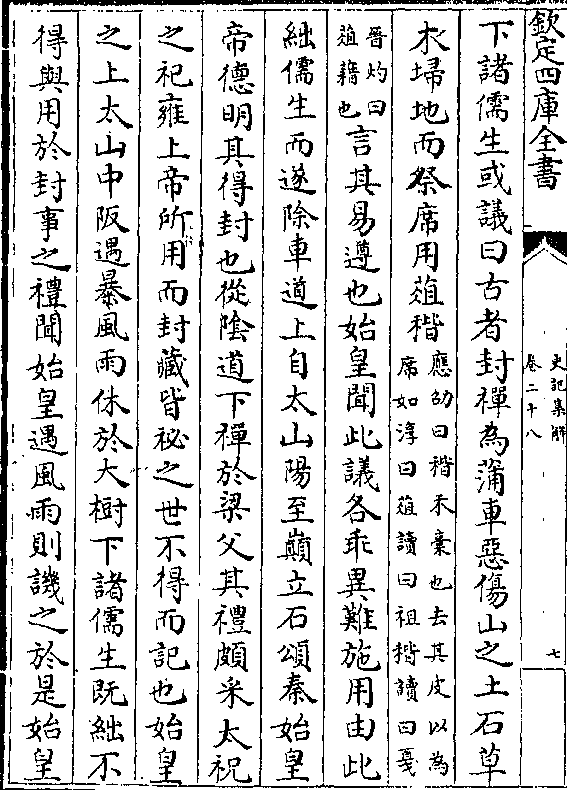 欽定四庫全書
史記集解
卷二十八
七
下諸儒生或議曰古者封禪為蒲車惡傷山之土石草
木埽地而祭席用葅稭應劭曰稭禾稾也去其皮以為席如淳曰葅讀曰租稭讀曰戞
晉灼曰葅籍也言其易遵也始皇聞此議各乖異難施用由此
絀儒生而遂除車道上自太山陽至巔立石頌秦始皇
帝德明其得封也從陰道下禪於梁父其禮頗采太祝
之祀雍上帝所用而封藏皆祕之世不得而記也始皇
之上太山中阪遇暴風雨休於大樹下諸儒生既絀不
得與用於封事之禮聞始皇遇風雨則譏之於是始皇